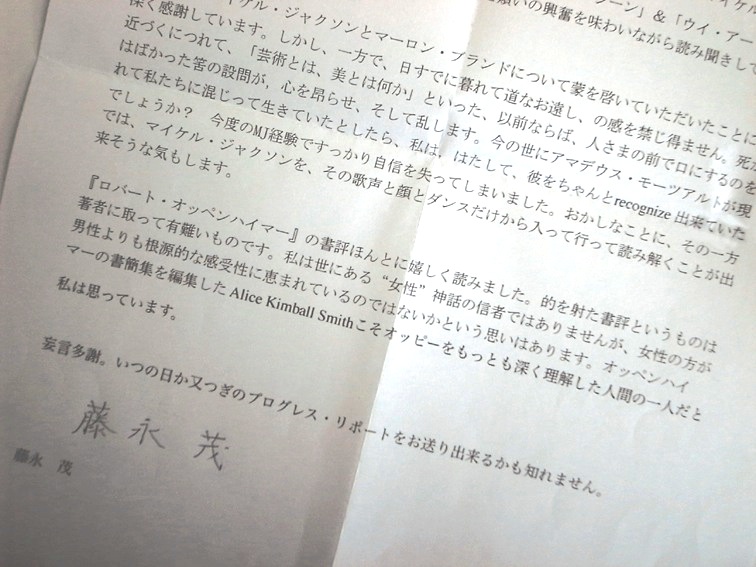 イケル
ーン」&「ウイ・アー
い願いの興奮を味わいながら読み聞きして
イケル・ジャクソンとマーロン・ブランドについて蒙を啓いていただいたことに
深く感謝しています。しかし、一方で、日すでに暮れて道なお遠し、の感を禁じ得ません。死が
近づくにつれて、「芸術とは、美とは何か」といった、以前ならば、人さまの前で口にするのを
はばかった筈の設問が、心を昂らせ、そして乱します。今の世にアマデウス・モーツアルトが現
れて私たちに混じって生きていたとしたら、私は、はたして、彼をちゃんとrecognize出来ていた
でしょうか? 今度のMJ経験ですっかり自信を失ってしまいました。おかしなことに、その一方
では、マイケル・ジャクソンを、その歌声と顔とダンスだけから入って行って読み解くことが出
来そうな気もします。
『ロバート・オッペンハイマー』の書評ほんとに嬉しく読みました。的を射た書評というものは
著者に取って有難いものです。私は世にある“女性”神話の信者ではありませんが、女性の方が
男性よりも根源的な感受性に恵まれているのではないかという思いはあります。オッペンハイ
マーの書簡集を編集したAlice Kimball Smithこそオッピーをもっとも深く理解した人間の一人だと
私は思っています。
妄言多謝。いつの日か又つぎのプログレス・リポートをお送り出来るかも知れません。
藤永茂
藤永 茂